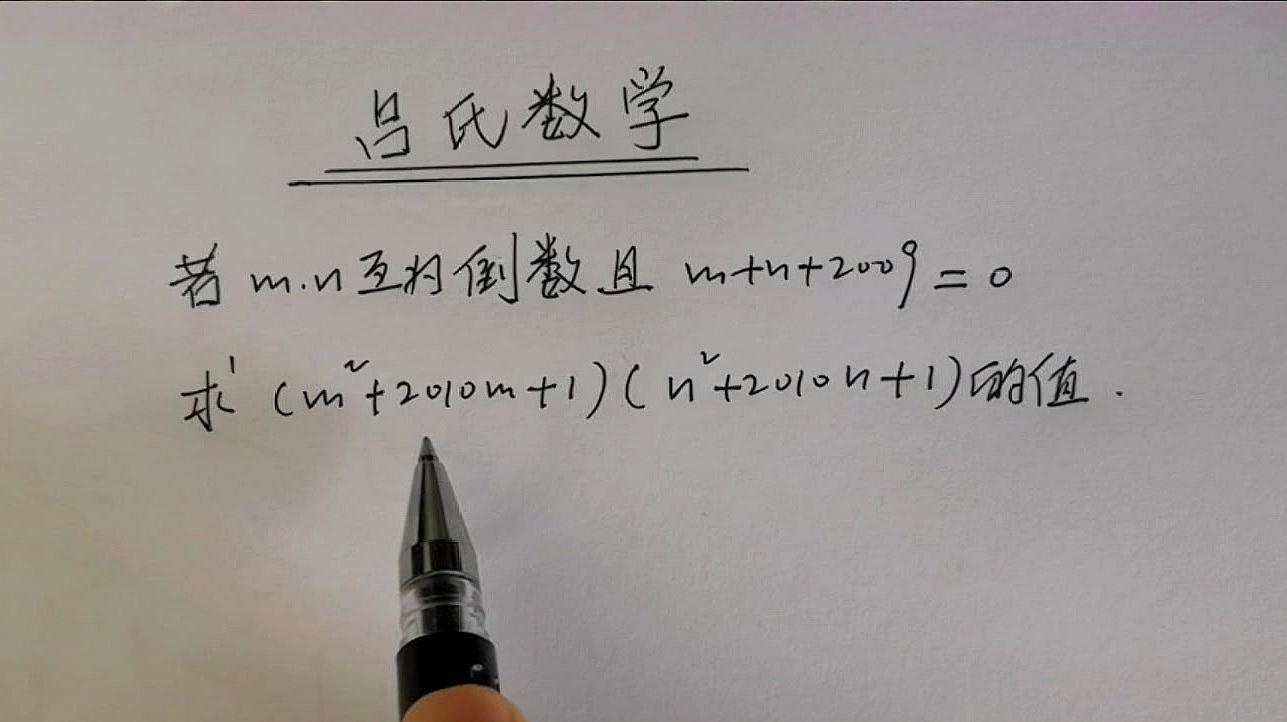 吕氏数学
若 m.n互为倒数且 m+n+2009=0
求 (m²+2010m+1)(n²+2010n+1)的值.